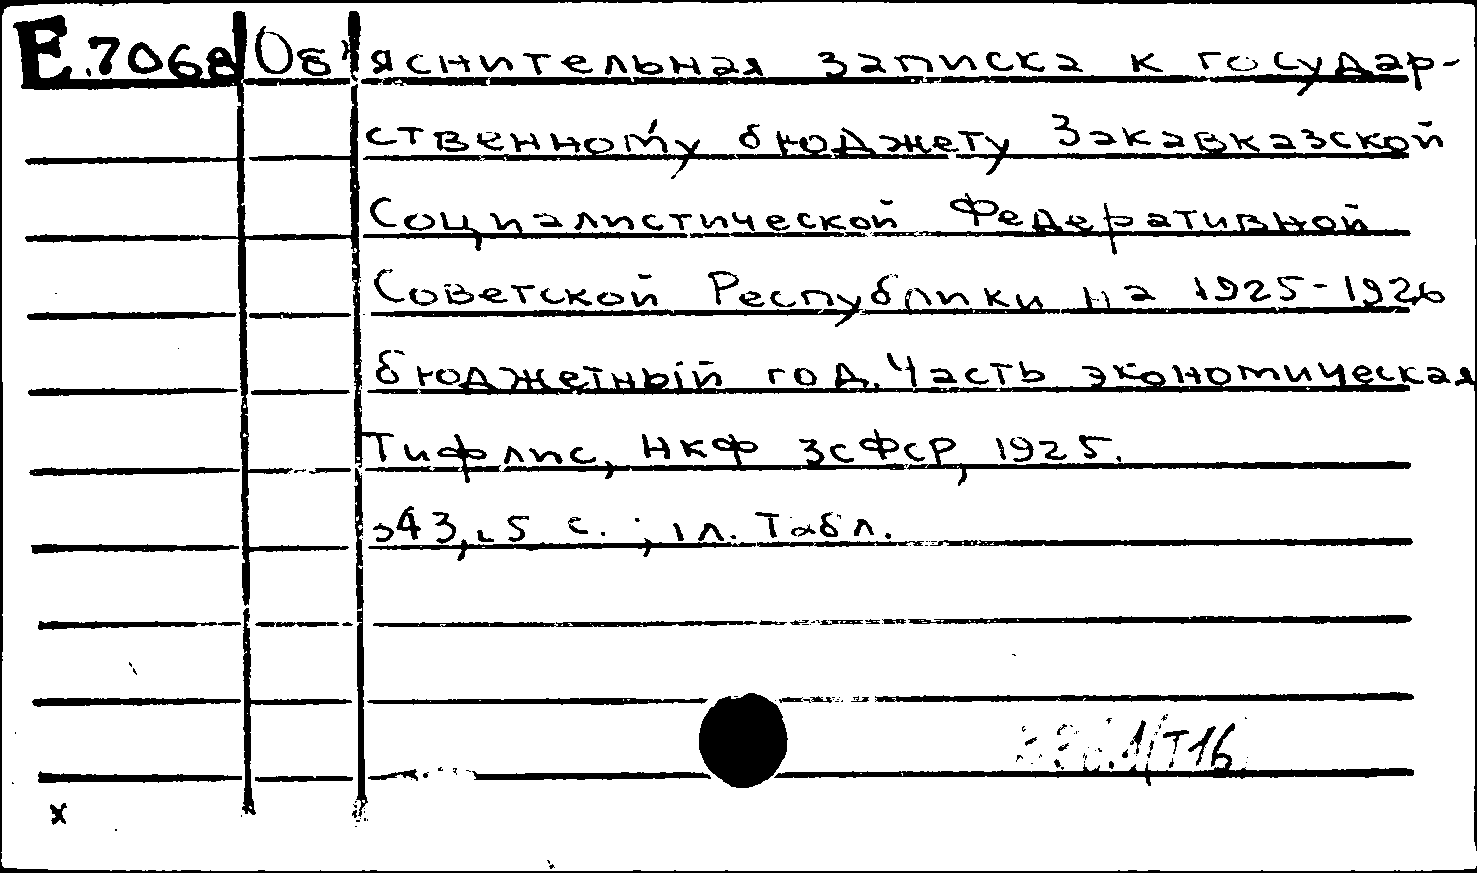 Е.7068 Об'яснительная записка к государ-
ственному бюджету Закавказской
Социалистической Федеративной
Советской Республики на 1925-1926
бюджетный год. Часть экономическая
Тифлис, НКФ ЗСФСР, 1925.
с.; 1 л. Табл.
x